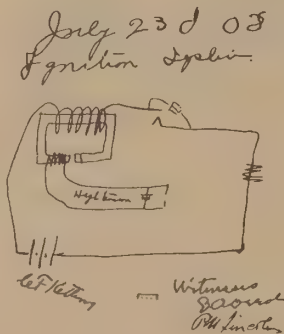 July 23d 08
Ignition System
High tension
CF Kettering
Witnesses